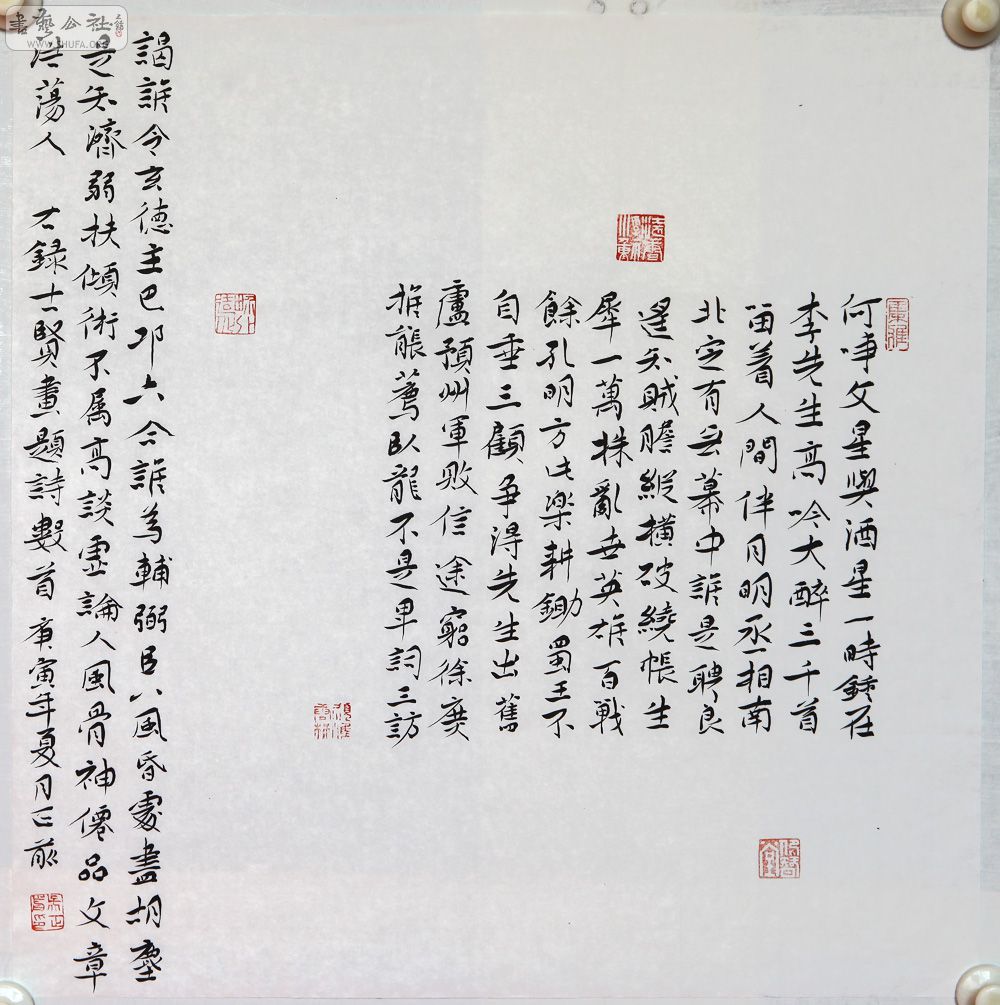 何事文星與酒星一時鍾在
李先生高吟大醉三千首
留着人間伴月明丞相南
北定有云幕中誰是聘良
遥知賊膽縱橫破繞帳生
犀一萬株亂世英雄百戰
餘孔明方此樂耕鋤蜀王不
自垂三顧争得先生出舊
廬預州軍敗信途窮徐庶
推能薦臥龍不是卑詞三訪
謁誰令玄德主巴邛六合誰為輔弼臣八風昏處盡胡塵
是知濟弱扶傾術不属高談虚論人風骨神僊品文章
浩蕩人 右録古賢畫題詩數首 庚寅年夏月正
書藝公社
www.SHUFA.ORG